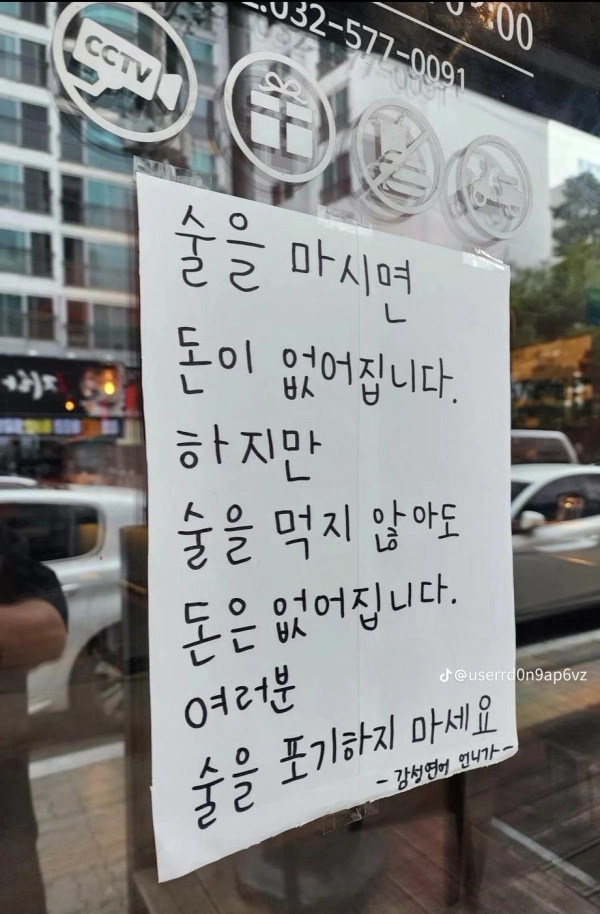 032-577-0091
CCTV
술을 마시면
돈이 없어집니다.
하지만
술을 먹지 않아도
돈은 없어집니다.
여러분
술을 포기하지 마세요
- 감성연어 언니가 -
@userrd0n9ap6vz